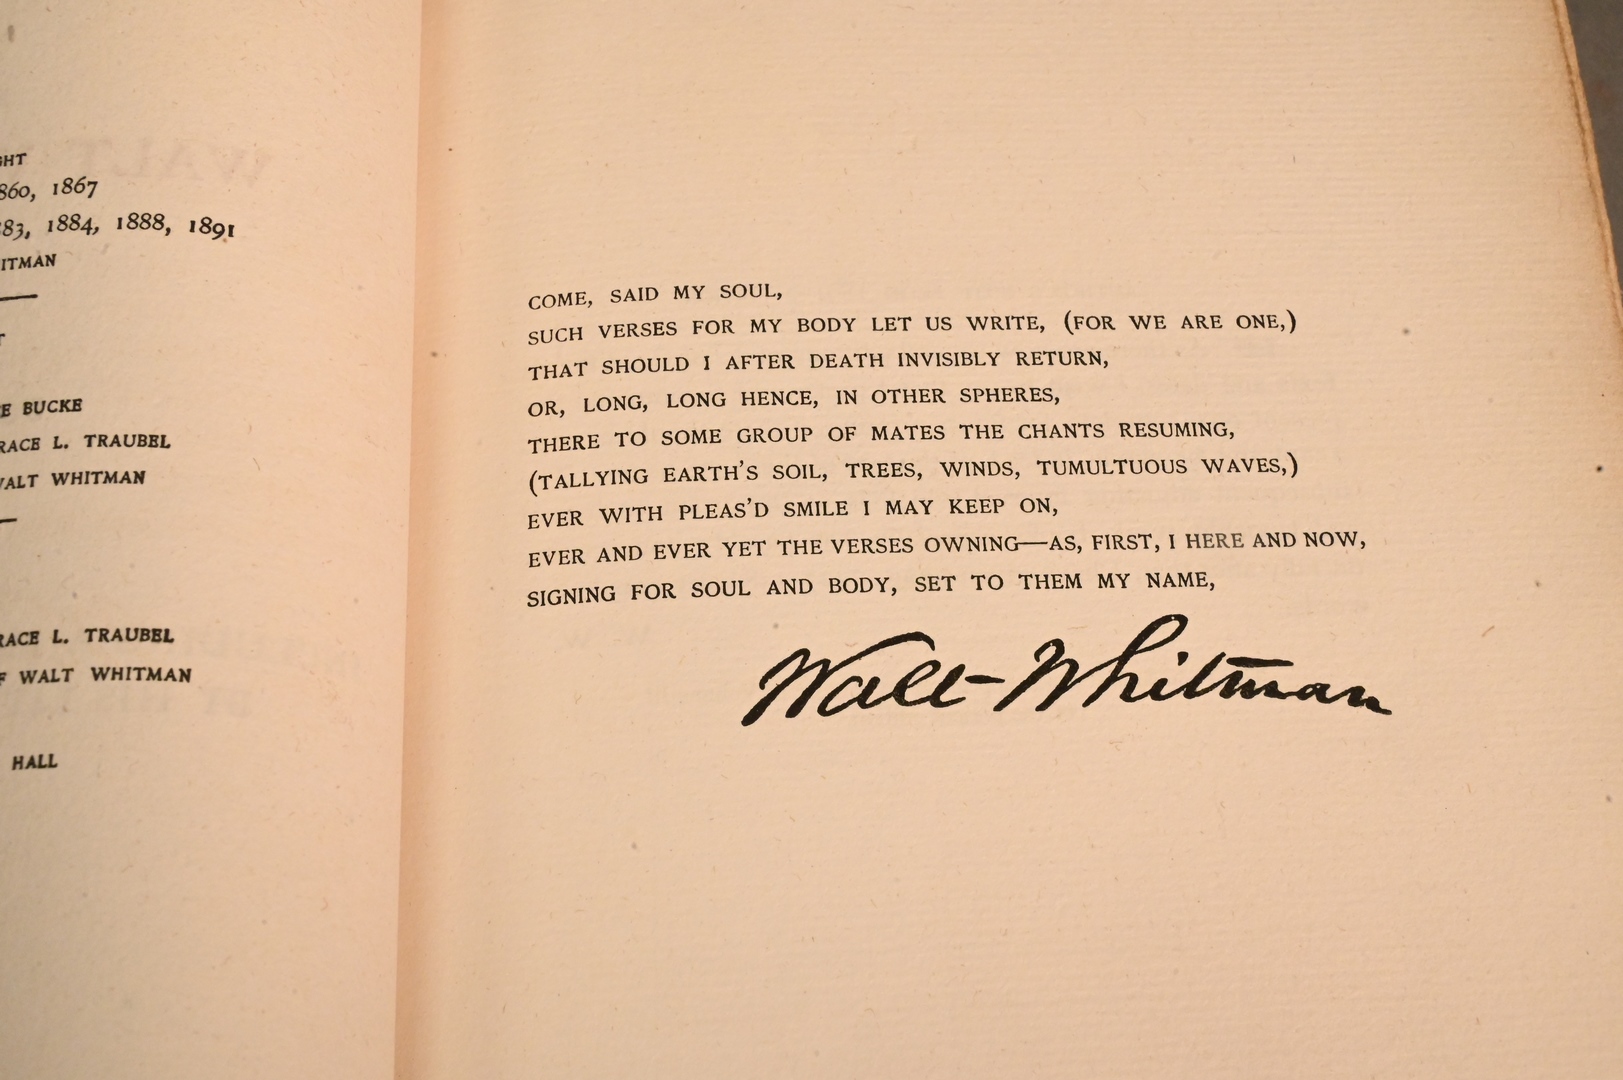 1867
1884, 1888, 1891
BUCKE
L. TRAUBEL
WHITMAN
L. TRAUBEL
WALT WHITMAN
HALL
COME, SAID MY SOUL,
SUCH VERSES FOR MY BODY LET US WRITE, (FOR WE ARE ONE,)
THAT SHOULD I AFTER DEATH INVISIBLY RETURN,
OR, LONG, LONG HENCE, IN OTHER SPHERES,
THERE TO SOME GROUP OF MATES THE CHANTS RESUMING,
(TALLYING EARTH'S SOIL, TREES, WINDS, TUMULTUOUS WAVES,)
EVER WITH PLEAS'D SMILE I MAY KEEP ON,
EVER AND EVER YET THE VERSES OWNING—AS, FIRST, I HERE AND NOW,
SIGNING FOR SOUL AND BODY, SET TO THEM MY NAME,
Walt Whitman